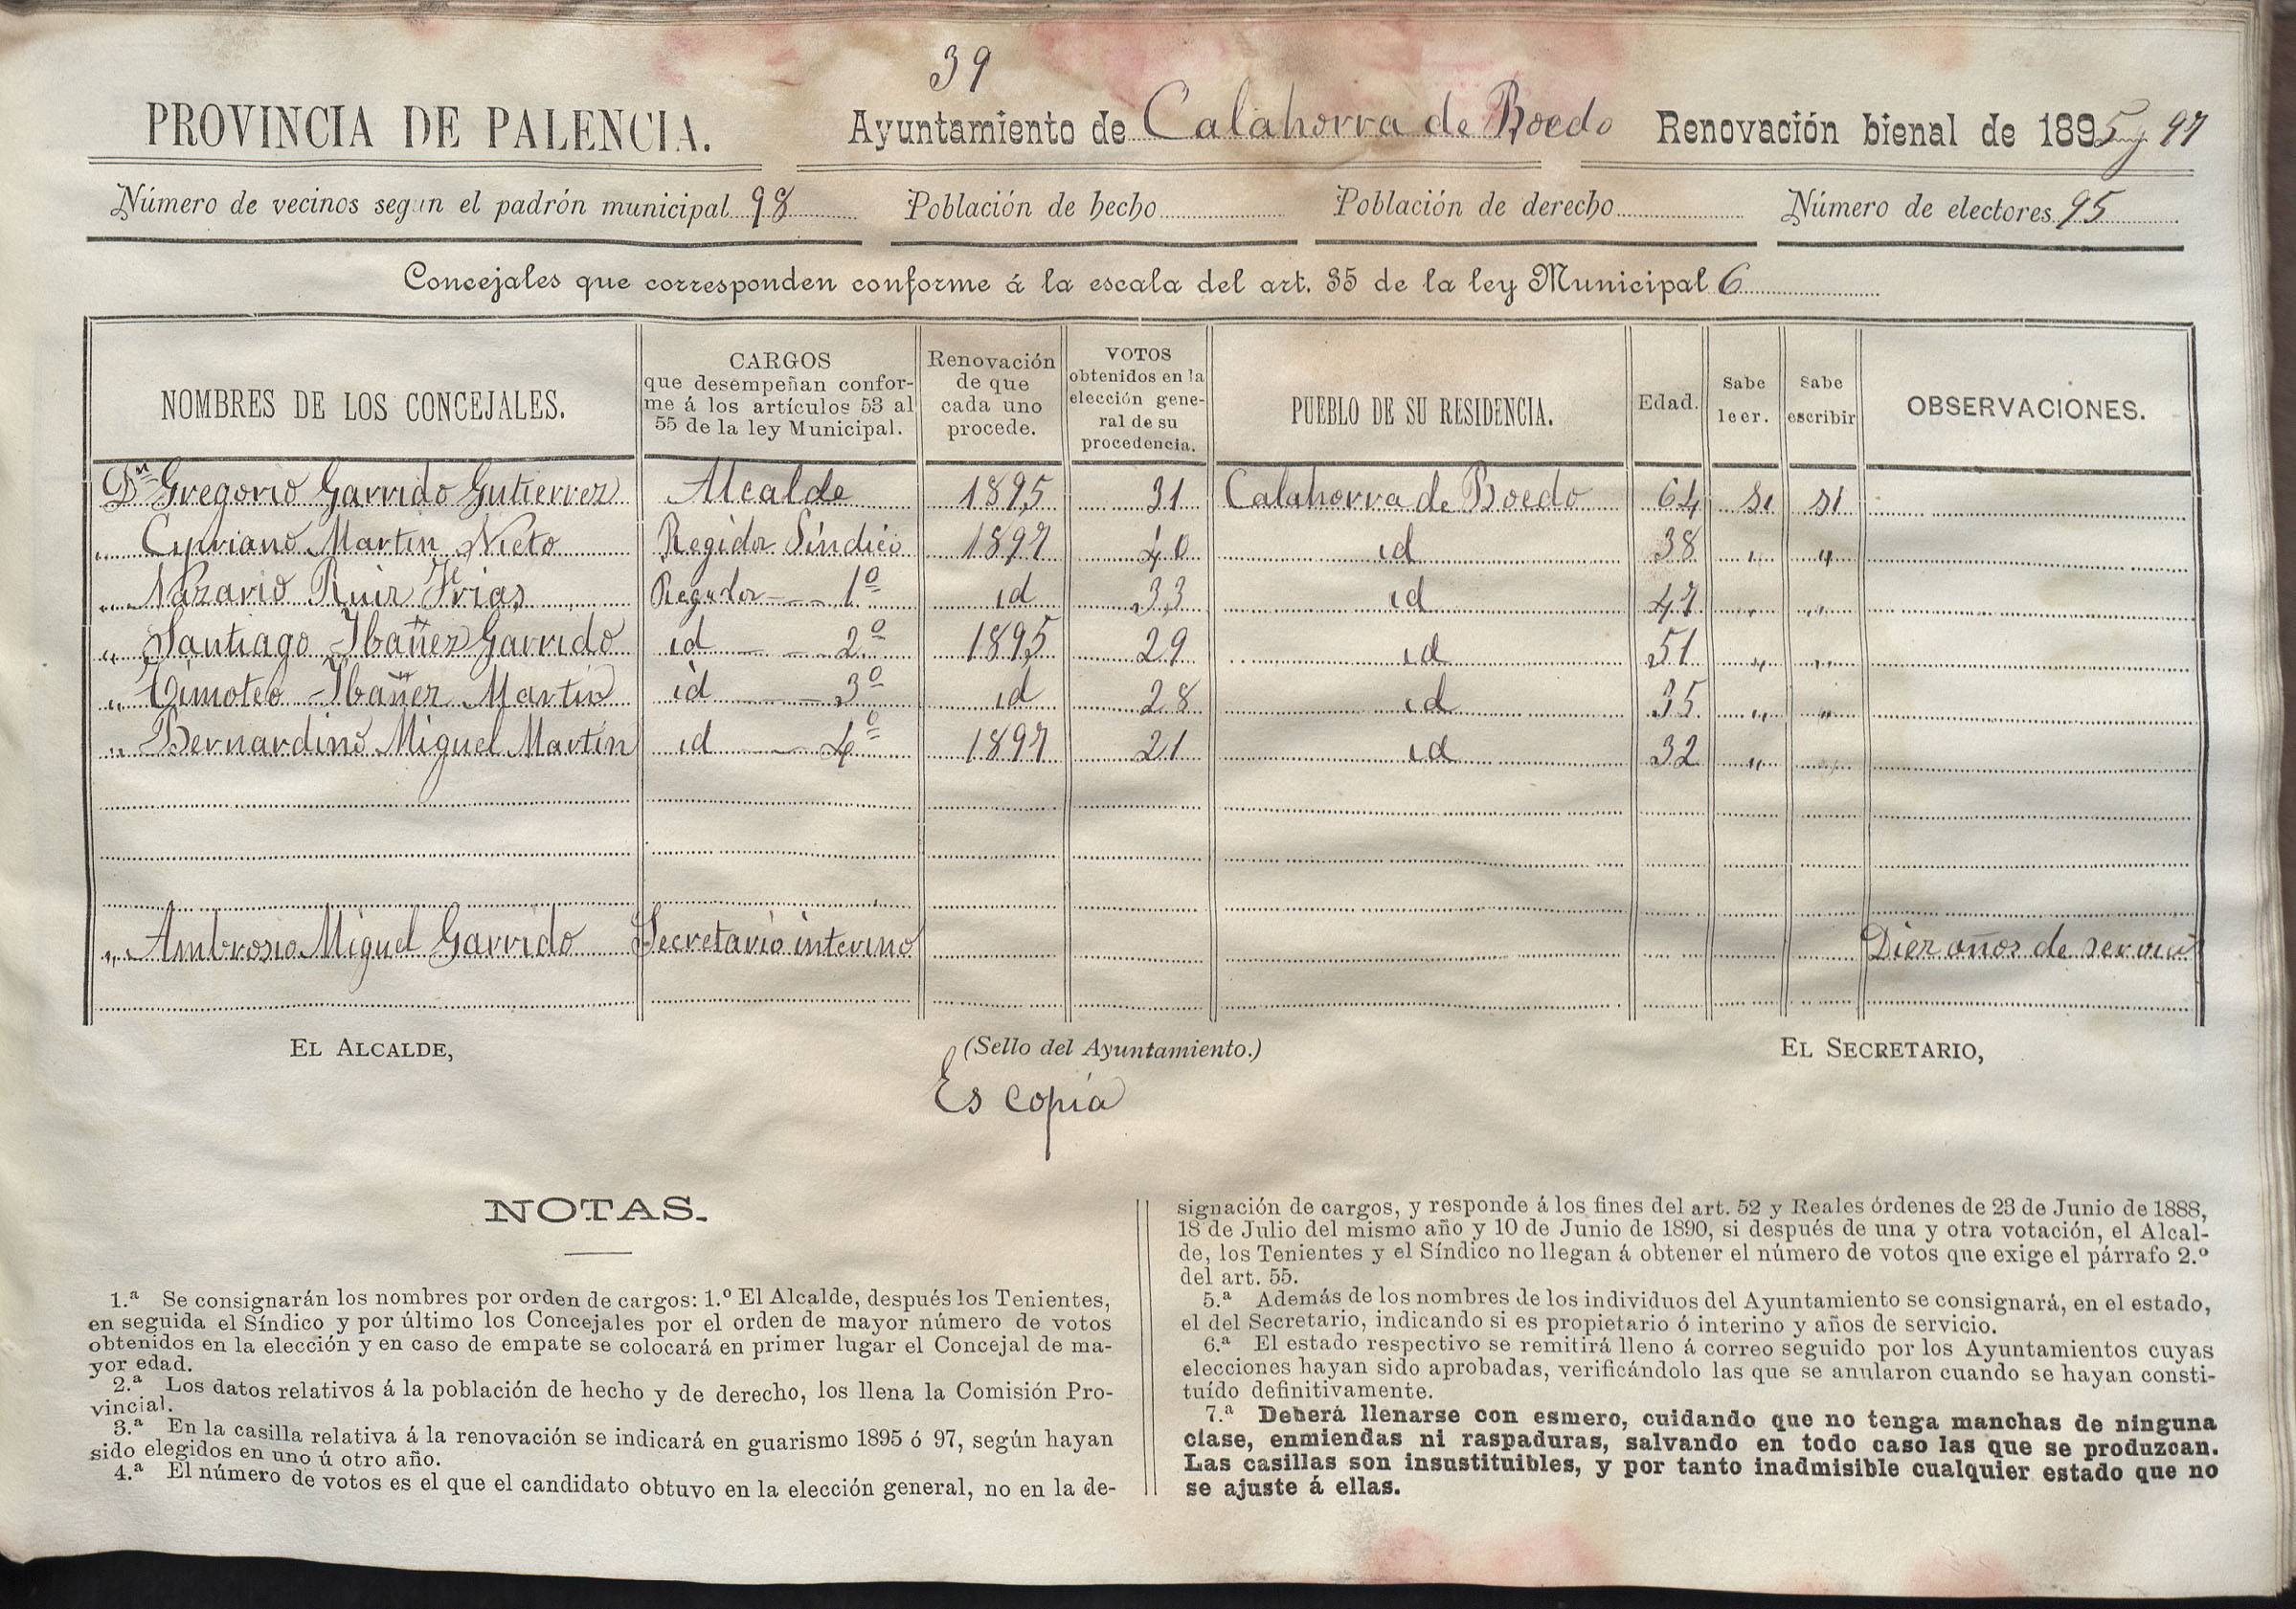 39
PROVINCIA DE PALENCIA. Ayuntamiento de Calahorra de Boedo Renovación bienal de 1895 y 97
Número de vecinos según el padrón municipal 98 Población de hecho Población de derecho Número de electores 95
Concejales que corresponden conforme á la escala del art. 35 de la ley Municipal 6
NOMBRES DE LOS CONCEJALES. CARGOS que desempeñan conforme á los artículos 53 al 55 de la ley Municipal. Renovación de que cada uno procede. VOTOS obtenidos en la elección general de su procedencia. PUEBLO DE SU RESIDENCIA. Edad. Sabe leer. Sabe escribir OBSERVACIONES.
Dn Gregorio Garrido Gutierrez Alcalde 1895 31 Calahorra de Boedo 64 si si
" Cipriano Martin Nieto Regidor Síndico 1897 40 id 38 " "
" Nazario Ruiz Frias Regidor 1º id 33 id 47 " "
" Santiago Ibañez Garrido id 2º 1895 29 id 51 " "
" Timoteo Ibañez Martin id 3º id 28 id 35 " "
" Bernardino Miguel Martin id 4º 1897 21 id 32 " "
" Ambrosio Miguel Garrido Secretario interino Diez años de servici
EL ALCALDE, (Sello del Ayuntamiento.) EL SECRETARIO,
Es copia
NOTAS.
1.ª Se consignarán los nombres por orden de cargos: 1.º El Alcalde, después los Tenientes,
en seguida el Síndico y por último los Concejales por el orden de mayor número de votos
obtenidos en la elección y en caso de empate se colocará en primer lugar el Concejal de ma-
yor edad.
2.ª Los datos relativos á la población de hecho y de derecho, los llena la Comisión Pro-
vincial.
3.ª En la casilla relativa á la renovación se indicará en guarismo 1895 ó 97, según hayan
sido elegidos en uno ú otro año.
4.ª El número de votos es el que el candidato obtuvo en la elección general, no en la de-
signación de cargos, y responde á los fines del art. 52 y Reales órdenes de 23 de Junio de 1888,
18 de Julio del mismo año y 10 de Junio de 1890, si después de una y otra votación, el Alcal-
de, los Tenientes y el Síndico no llegan á obtener el número de votos que exige el párrafo 2.º
del art. 55.
5.ª Además de los nombres de los individuos del Ayuntamiento se consignará, en el estado,
el del Secretario, indicando si es propietario ó interino y años de servicio.
6.ª El estado respectivo se remitirá lleno á correo seguido por los Ayuntamientos cuyas
elecciones hayan sido aprobadas, verificándolo las que se anularon cuando se hayan consti-
tuído definitivamente.
7.ª Deberá llenarse con esmero, cuidando que no tenga manchas de ninguna
clase, enmiendas ni raspaduras, salvando en todo caso las que se produzcan.
Las casillas son insustituibles, y por tanto inadmisible cualquier estado que no
se ajuste á ellas.